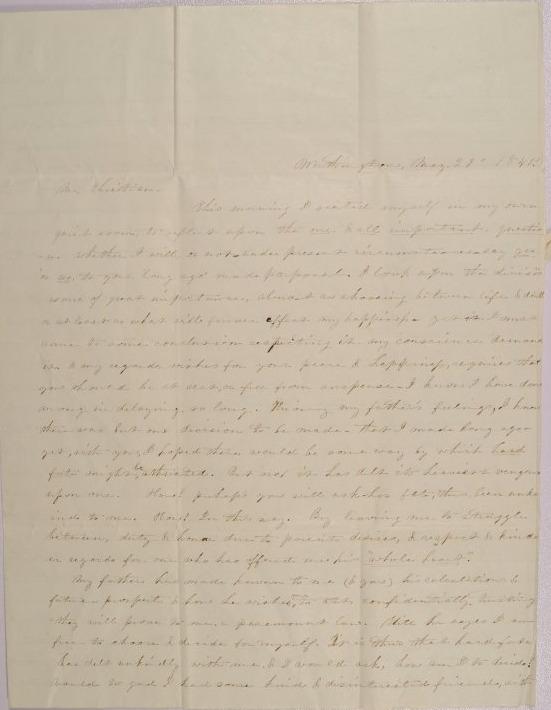 Worthington, May 28th 184
Mr Christian.
This morning I seated myself in my own
quiet room, to reflect upon the one & all important question
whether I will or not under present circumstances say yes
or no, to your long ago made proposal. I look upon the decision
some of great importance, almost as choosing between life & death
or at least as what will forever effect my happiness yet I must
come to some conclusion respecting it my conscience demands
it & my regards wishes for your peace & happiness, requires that
you should be at ease, or free from suspense. I know I have done
wrong in delaying so long. Knowing my father's feelings, I knew
there was but one decision to be made. that I made long ago
yet, with you, I hoped there would be some way by which hard
fate might be thwarted. But no! it has dealt its heaviest vengeance
upon me. How? perhaps you will ask has fate, thus been unkind
to me. How? In this way. By leaving me to struggle
between, duty & honor due to parents desires, & respect & kinder
regards for one who has offered me his "whole heart".
My father has made known to me (& you) his calculations &
future prospects & how he wishes, to rest confidentially trusting
they will prove to me, a paramount law. Still he says I am
free to choose & decide for myself. It is thus that hard fate
has dealt unkindly with me, & I would ask, how am I to decide?
would to god I had some kind & disinterested friend, with